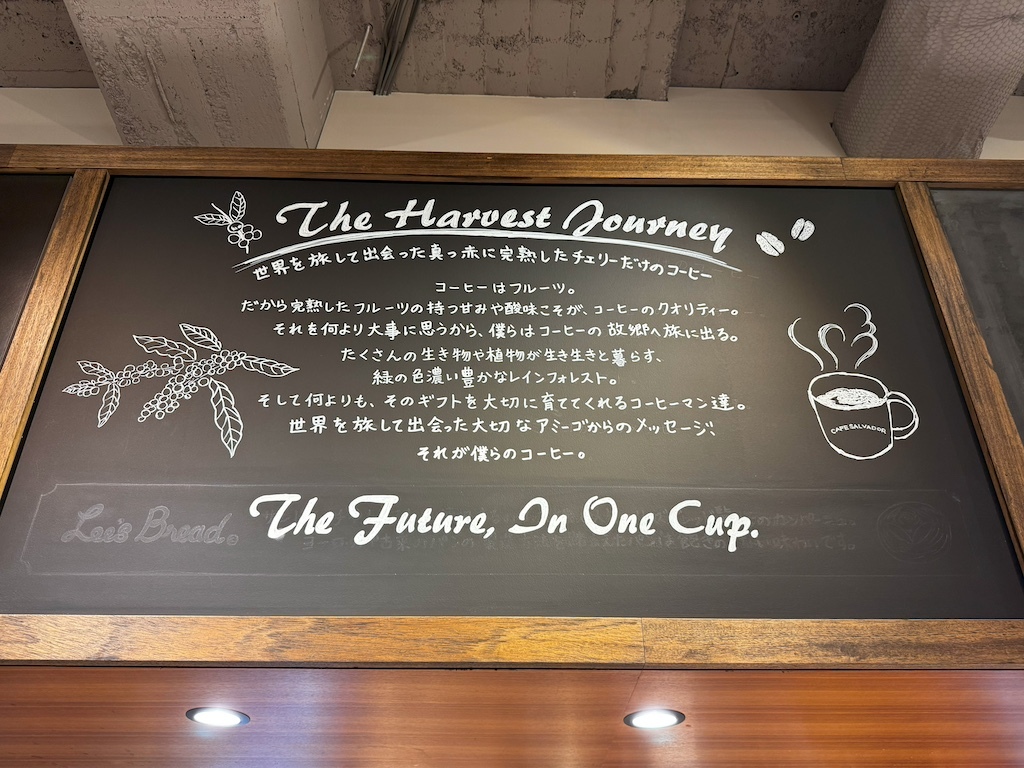 The Harvest Journey
世界を旅して出会った真っ赤に完熟したチェリーだけのコーヒー
コーヒーはフルーツ。
だから完熟したフルーツの持つ甘みや酸味こそが、コーヒーのクオリティー。
それを何より大事に思うから、僕らはコーヒーの故郷へ旅に出る。
たくさんの生き物や植物が生き生きと暮らす、
緑の色濃い豊かなレインフォレスト。
そして何よりも、そのギフトを大切に育ててくれるコーヒーマン達。
世界を旅して出会った大切なアミーゴからのメッセージ、
それが僕らのコーヒー。
CAFE SALVADOR
Lee's Bread。
The Future, In One Cup.